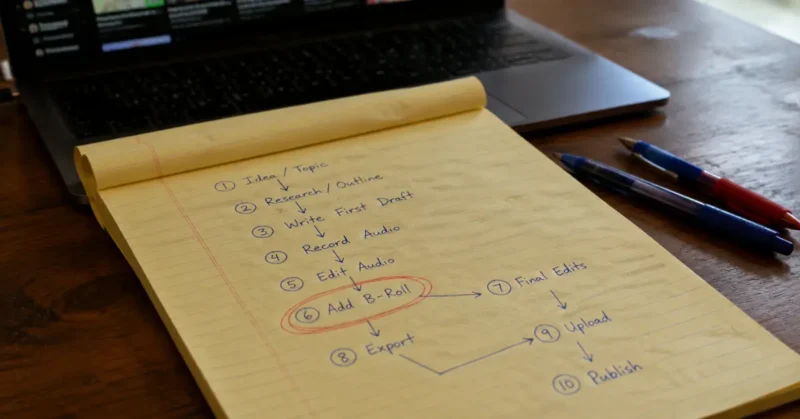 ① Idea / Topic
② Research / Outline
③ Write First Draft
④ Record Audio
⑤ Edit Audio
⑥ Add B-Roll
⑦ Final Edits
⑧ Export
⑨ Upload
⑩ Publish